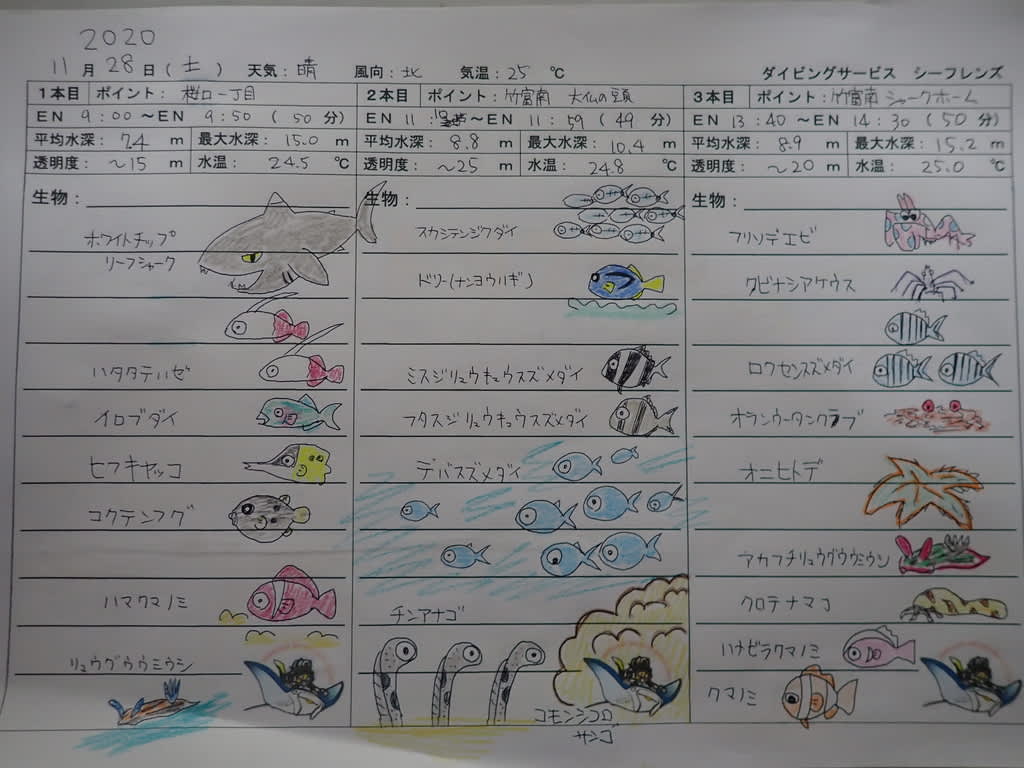 2020
11月28日(土) 天気:晴 風向:北 気温:25 ℃
ダイビングサービス シーフレンズ
1本目 ポイント: 桜口一丁目
EN 9:00 ~EN 9:50 (50 分)
平均水深: 7.4 m 最大水深: 15.0 m
透明度: ~15 m 水温: 24.5 ℃
生物:
ホワイトチップ
リーフシャーク
ハタタテハゼ
イロブダイ
ヒフキヤッコ
コクテンフグ
ハマクマノミ
リュウグウウミウシ
2本目 ポイント:竹富南 大仏の頭
EN 11: ~EN 11:59 (49 分)
平均水深: 8.8 m 最大水深: 10.4 m
透明度: ~25 m 水温: 24.8 ℃
生物:
スカシテンジクダイ
ドリー(ナンヨウハギ)
ミスジリュウキュウスズメダイ
フタスジリュウキュウスズメダイ
デバスズメダイ
チンアナゴ
コモンシコロ
サンゴ
3本目 ポイント:竹富南 シャークホーム
EN 13:40~EN 14:30 (50分)
平均水深: 8.9 m 最大水深: 15.2 m
透明度: ~20 m 水温: 25.0 ℃
生物:
フリソデエビ
クビナシアケウス
ロクセンスズメダイ
オランウータンクラブ
オニヒトデ
アカフチリュウグウウミウシ
クロテナマコ
ハナビラクマノミ
クマノミ